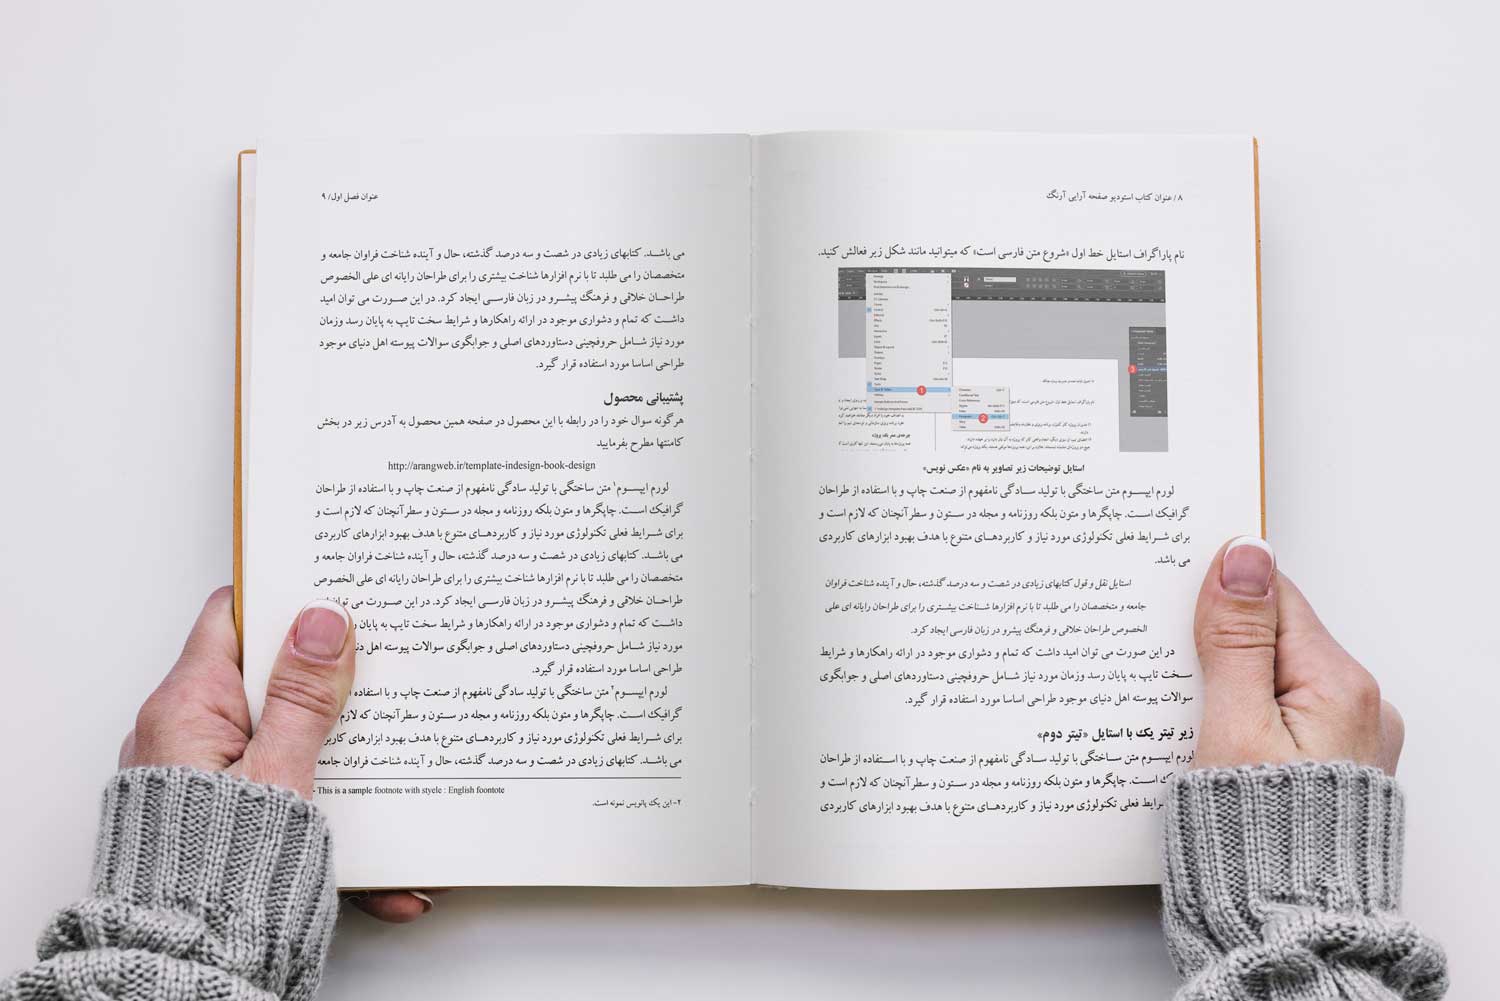 ۸ / عنوان کتاب استودیو صفحه آرایی آرنگ
نام پاراگراف استایل خط اول «شروع متن فارسی است» که میتوانید مانند شکل زیر فعالش کنید.
1
2
3
استایل توضیحات زیر تصاویر به نام «عکس نویس»
لورم ایپسوم متن ساختگی با تولید سادگی نامفهوم از صنعت چاپ و با استفاده از طراحان
گرافیک است. چاپگرها و متون بلکه روزنامه و مجله در ستون و سطرآنچنان که لازم است و
برای شرایط فعلی تکنولوژی مورد نیاز و کاربردهای متنوع با هدف بهبود ابزارهای کاربردی
می باشد.
استایل نقل و قول کتابهای زیادی در شصت و سه درصد گذشته، حال و آینده شناخت فراوان
جامعه و متخصصان را می طلبد تا با نرم افزارها شناخت بیشتری را برای طراحان رایانه ای علی
الخصوص طراحان خلاقی و فرهنگ پیشرو در زبان فارسی ایجاد کرد.
در این صورت می توان امید داشت که تمام و دشواری موجود در ارائه راهکارها و شرایط
سخت تایپ به پایان رسد وزمان مورد نیاز شامل حروفچینی دستاوردهای اصلی و جوابگوی
سوالات پیوسته اهل دنیای موجود طراحی اساسا مورد استفاده قرار گیرد.
زیر تیتر یک با استایل «تیتر دوم»
لورم ایپسوم متن ساختگی با تولید سادگی نامفهوم از صنعت چاپ و با استفاده از طراحان
است. چاپگرها و متون بلکه روزنامه و مجله در ستون و سطرآنچنان که لازم است و
فعلی تکنولوژی مورد نیاز و کاربردهای متنوع با هدف بهبود ابزارهای کاربردی
عنوان فصل اول/ ۹
می باشد. کتابهای زیادی در شصت و سه درصد گذشته، حال و آینده شناخت فراوان جامعه و
متخصصان را می طلبد تا با نرم افزارها شناخت بیشتری را برای طراحان رایانه ای علی الخصوص
طراحان خلاقی و فرهنگ پیشرو در زبان فارسی ایجاد کرد. در این صورت می توان امید
داشت که تمام و دشواری موجود در ارائه راهکارها و شرایط سخت تایپ به پایان رسد وزمان
مورد نیاز شامل حروفچینی دستاوردهای اصلی و جوابگوی سوالات پیوسته اهل دنیای موجود
طراحی اساسا مورد استفاده قرار گیرد.
پشتیبانی محصول
هرگونه سوال خود را در رابطه با این محصول در صفحه همین محصول به آدرس زیر در بخش
کامنتها مطرح بفرمایید
http://arangweb.ir/template-indesign-book-design
لورم ایپسوم۱ متن ساختگی با تولید سادگی نامفهوم از صنعت چاپ و با استفاده از طراحان
گرافیک است. چاپگرها و متون بلکه روزنامه و مجله در ستون و سطرآنچنان که لازم است و
برای شرایط فعلی تکنولوژی مورد نیاز و کاربردهای متنوع با هدف بهبود ابزارهای کاربردی
می باشد. کتابهای زیادی در شصت و سه درصد گذشته، حال و آینده شناخت فراوان جامعه و
متخصصان را می طلبد تا با نرم افزارها شناخت بیشتری را برای طراحان رایانه ای علی الخصوص
طراحان خلاقی و فرهنگ پیشرو در زبان فارسی ایجاد کرد. در این صورت می
داشت که تمام و دشواری موجود در ارائه راهکارها و شرایط سخت تایپ به پایان
مورد نیاز شامل حروفچینی دستاوردهای اصلی و جوابگوی سوالات پیوسته اهل
طراحی اساسا مورد استفاده قرار گیرد.
لورم ایپسوم۲ متن ساختگی با تولید سادگی نامفهوم از صنعت چاپ و با استفاده
گرافیک است. چاپگرها و متون بلکه روزنامه و مجله در ستون و سطرآنچنان که لازم
برای شرایط فعلی تکنولوژی مورد نیاز و کاربردهای متنوع با هدف بهبود ابزارهای
می باشد. کتابهای زیادی در شصت و سه درصد گذشته، حال و آینده شناخت فراوان جامعه
- This is a sample footnote with styele : English foontote
۲- این یک پانویس نمونه است.